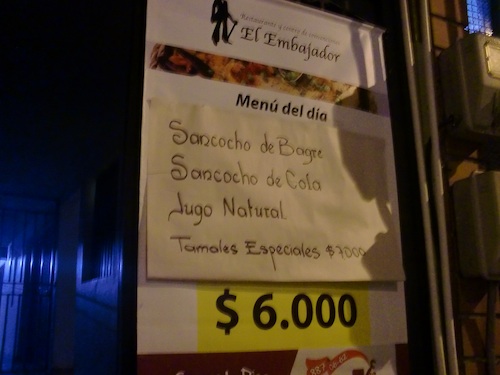 Restaurante y centro de convenciones
El Embajador
Menú del día
Sancocho de Bagre
Sancocho de Cola
Jugo Natural.
Tamales Especiales $7000
$ 6.000